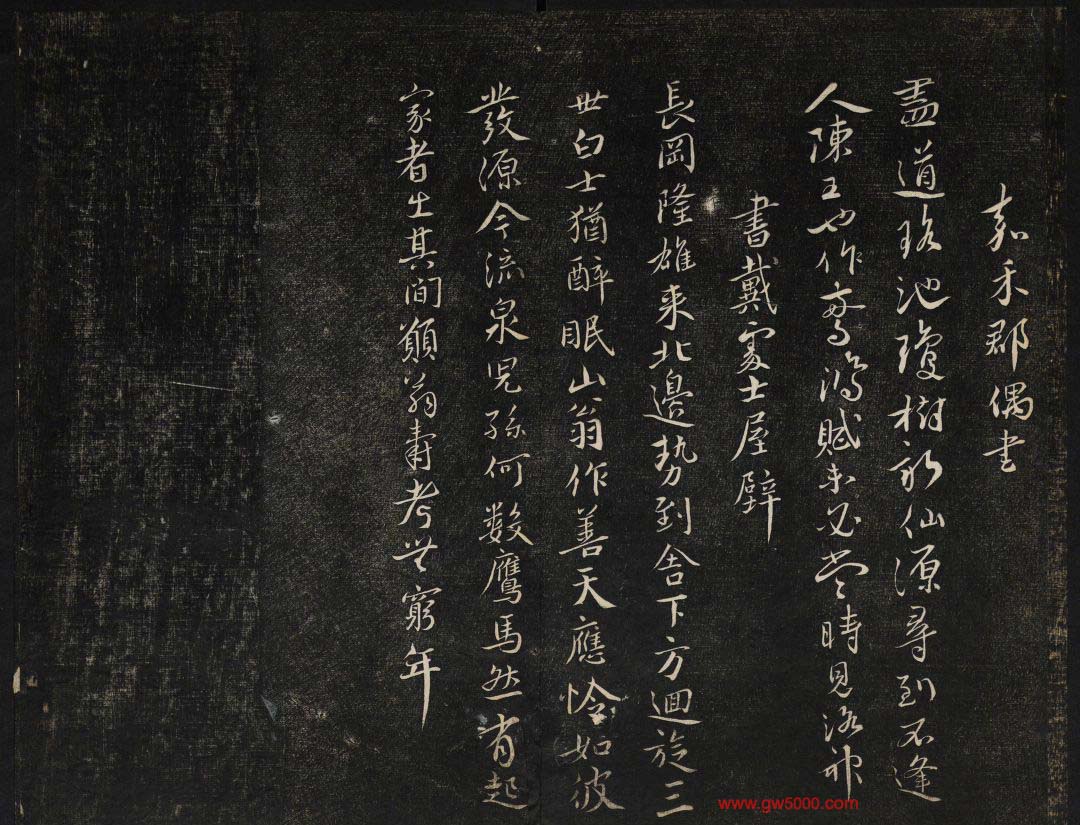 嘉禾郡偶書
盡道瑤池瓊樹新仙源尋到不逢
人陳王也作驚鴻賦未必當時見洛神
書戴處士屋壁
長岡隆雄來北邊勢到舍下方迴旋三
世白士猶醉眠山翁作善天應憐如彼
發源今流泉兒孫何數鷹馬然有起
家者生其間願翁壽考無窮年
www.gw5000.com